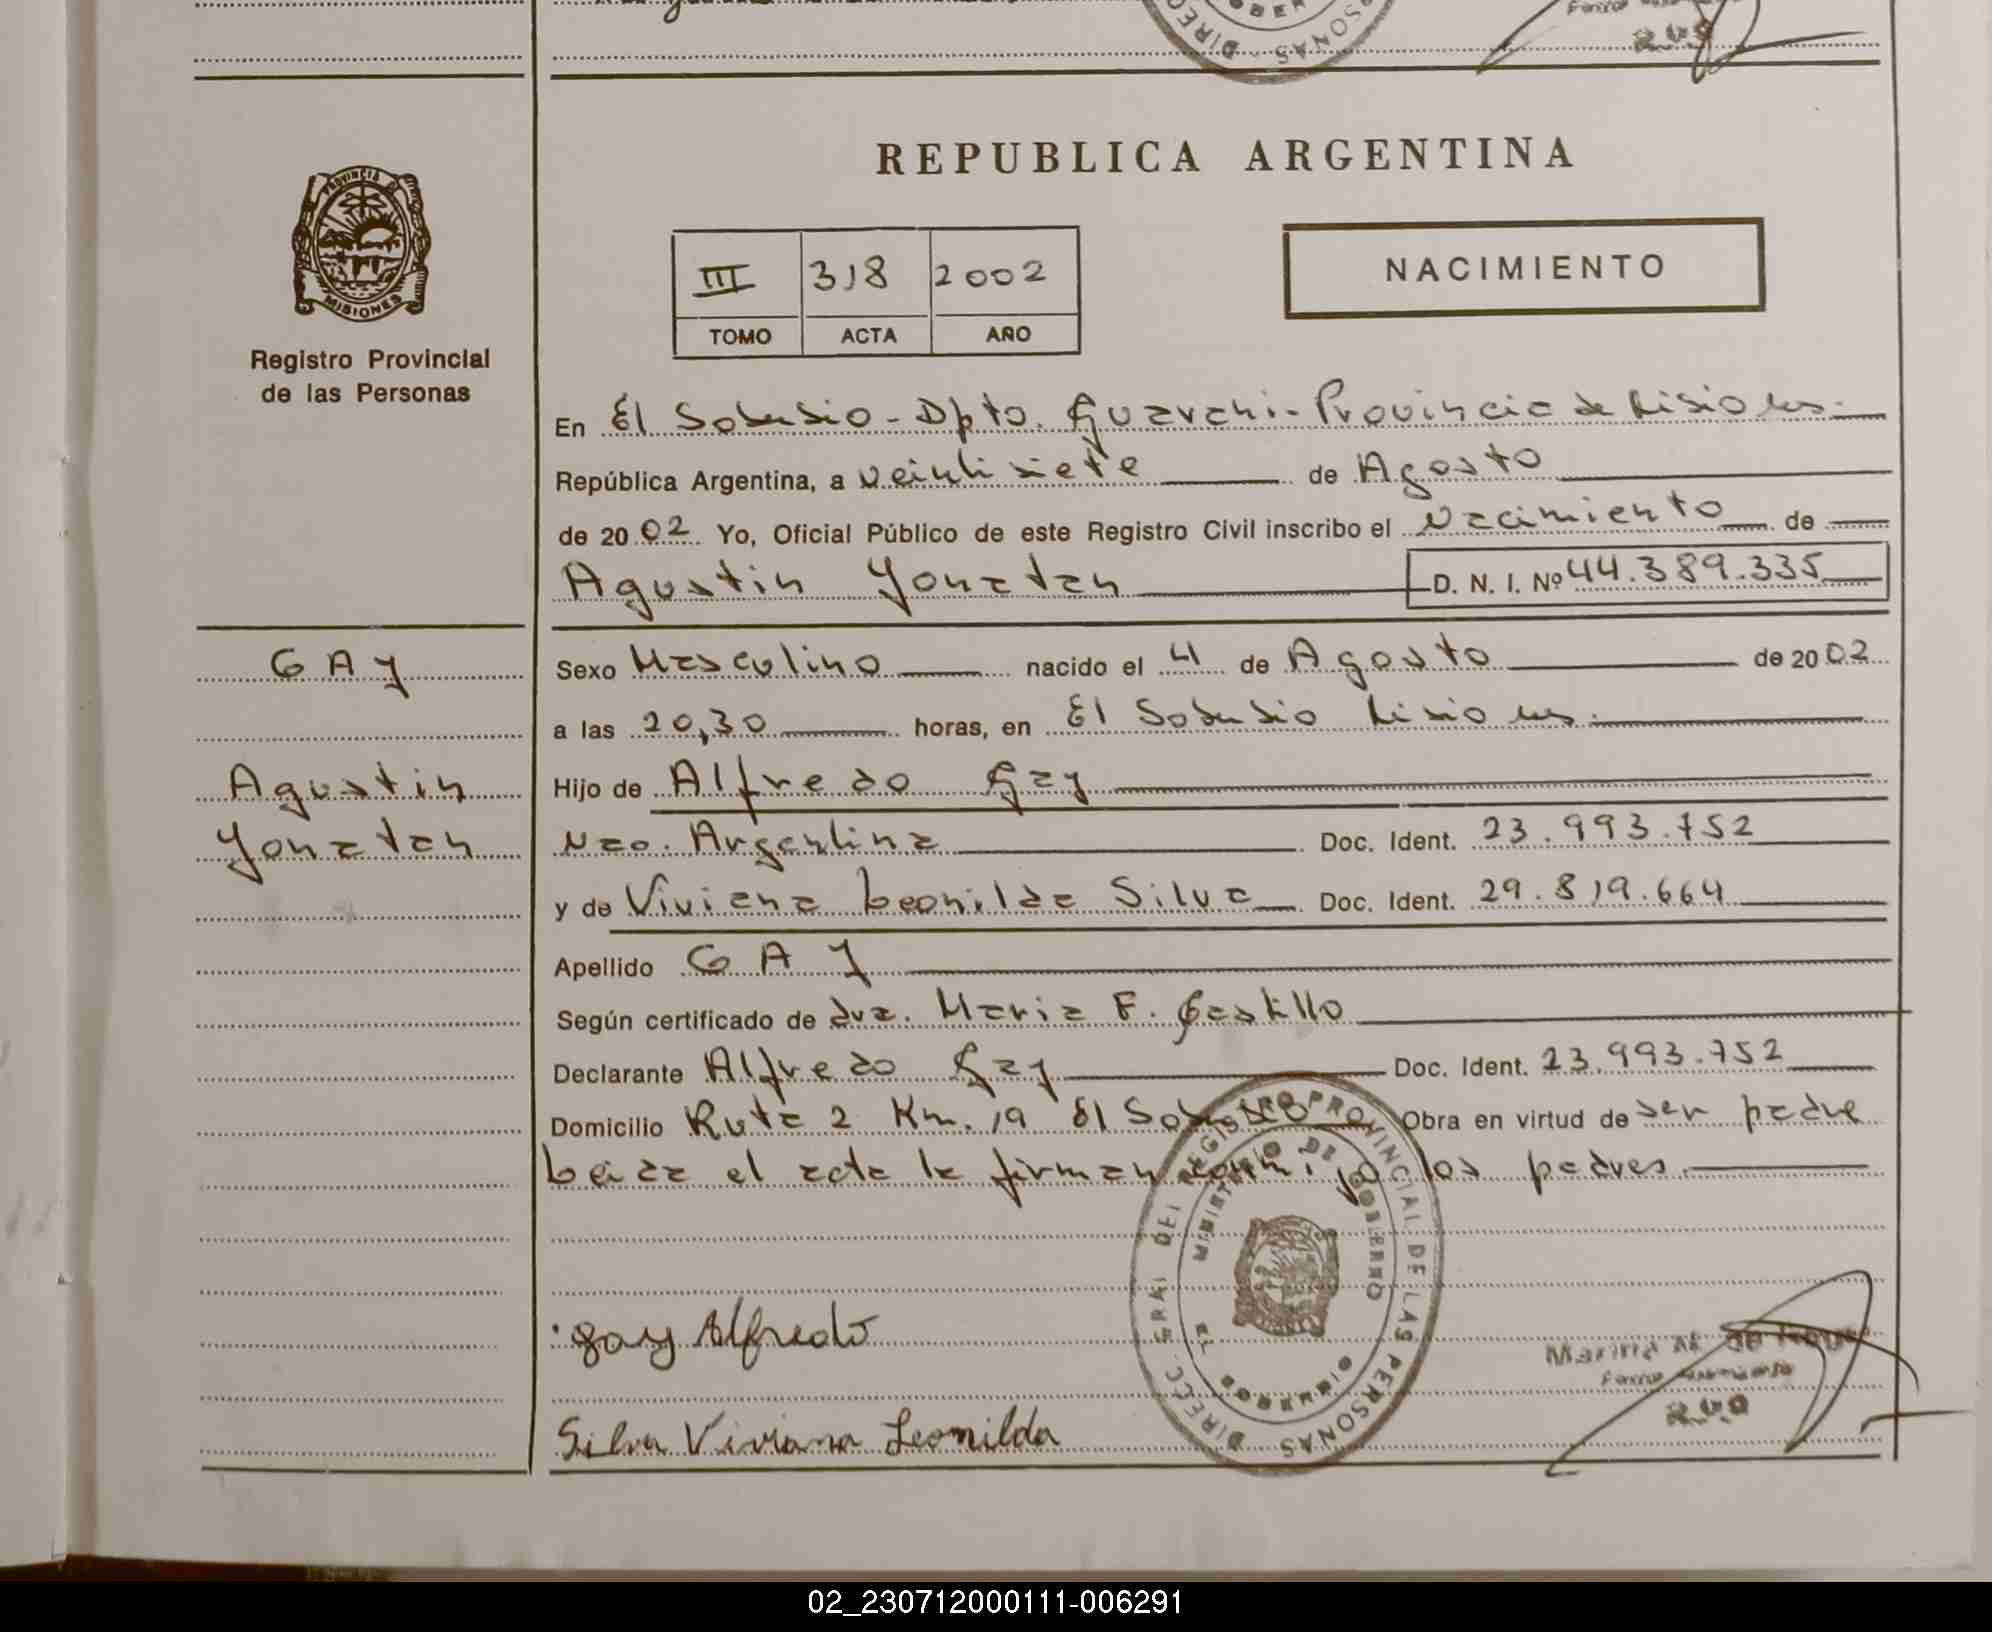 REPUBLICA ARGENTINA
PROVINCIA DE
MISIONES
Registro Provincial
de las Personas
III 318 2002
TOMO ACTA AÑO
NACIMIENTO
En El Soberbio - Dpto. Guarani - Provincia de Misiones.
República Argentina, a veintisiete de Agosto
de 2002 Yo, Oficial Público de este Registro Civil inscribo el Nacimiento de
Agustin Yonatan D. N. I. Nº 44.389.335
GAY
Sexo Masculino nacido el 4 de Agosto de 2002
a las 20,30 horas, en El Soberbio Misiones.
Agustin
Hijo de Alfredo Gay
Yonatan
Nac. Argentina Doc. Ident. 23.993.752
y de Viviana Leonilda Silva Doc. Ident. 29.819.664
Apellido GAY
Según certificado de dra. Maria F. Castillo
Declarante Alfredo Gay Doc. Ident. 23.993.752
Domicilio Ruta 2 Km. 19 El Soberbio Obra en virtud de ser padre
Leida el acta la firman conmigo los padres.
DIREC. GRAL. DEL REGISTRO PROVINCIAL DE LAS PERSONAS
MINISTERIO DE GOBIERNO
EL SOBERBIO
Gay Alfredo
Silva Viviana Leonilda
02_230712000111-006291